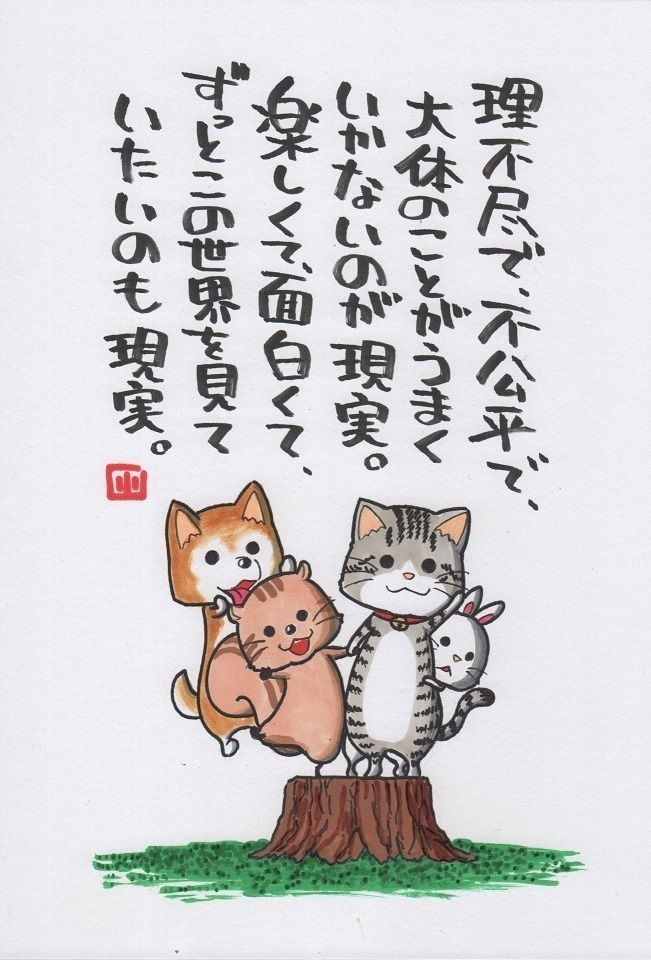 理不尽で、不公平で、
大体のことがうまく
いかないのが現実。
楽しくて、面白くて、
ずっとこの世界を見て
いたいのも現実。